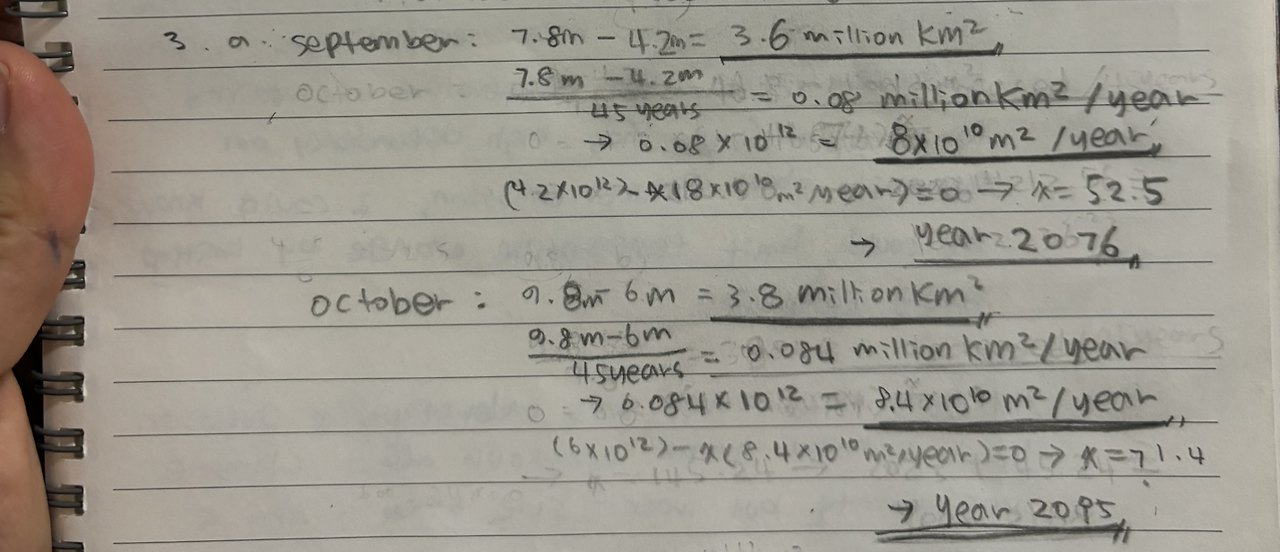 3. a. september: 7.8m - 4.2m = 3.6 million km²
7.8m - 4.2m / 45 years = 0.08 million km² / year
→ 0.08 × 10¹² = 8×10¹⁰ m² / year
(4.2×10¹²) - x(8×10¹⁰ m²/year) = 0 → x = 52.5
→ year 2076
october: 9.8m - 6m = 3.8 million km²
9.8m - 6m / 45 years = 0.084 million km² / year
→ 0.084 × 10¹² = 8.4×10¹⁰ m² / year
(6×10¹²) - x(8.4×10¹⁰ m²/year) = 0 → x = 71.4
→ year 2095